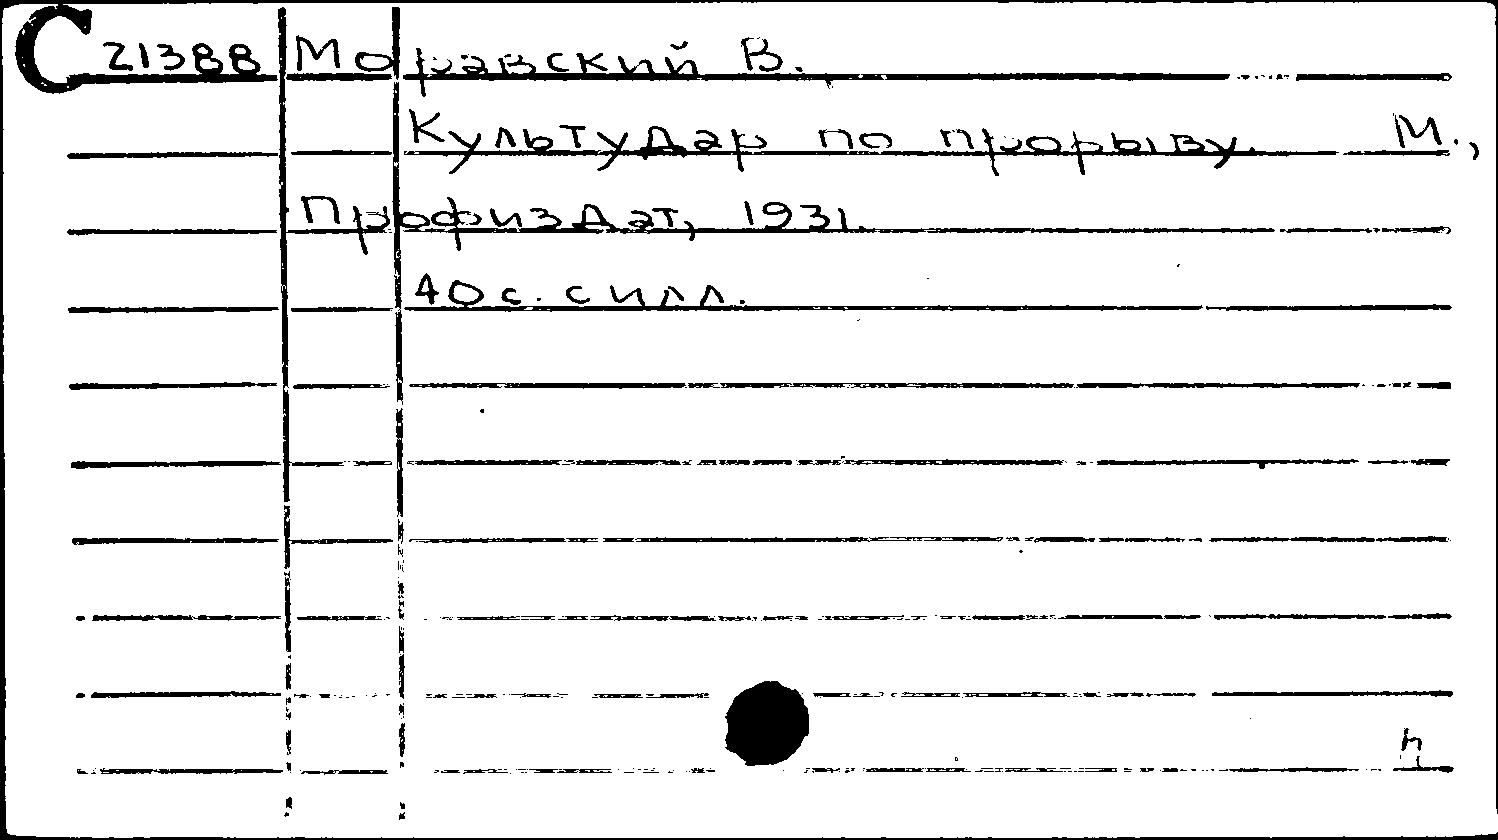 С 21388 Моравский В.,
Культудар по прорыву. М.,
Профиздат, 1931.
40 с. с илл.
h